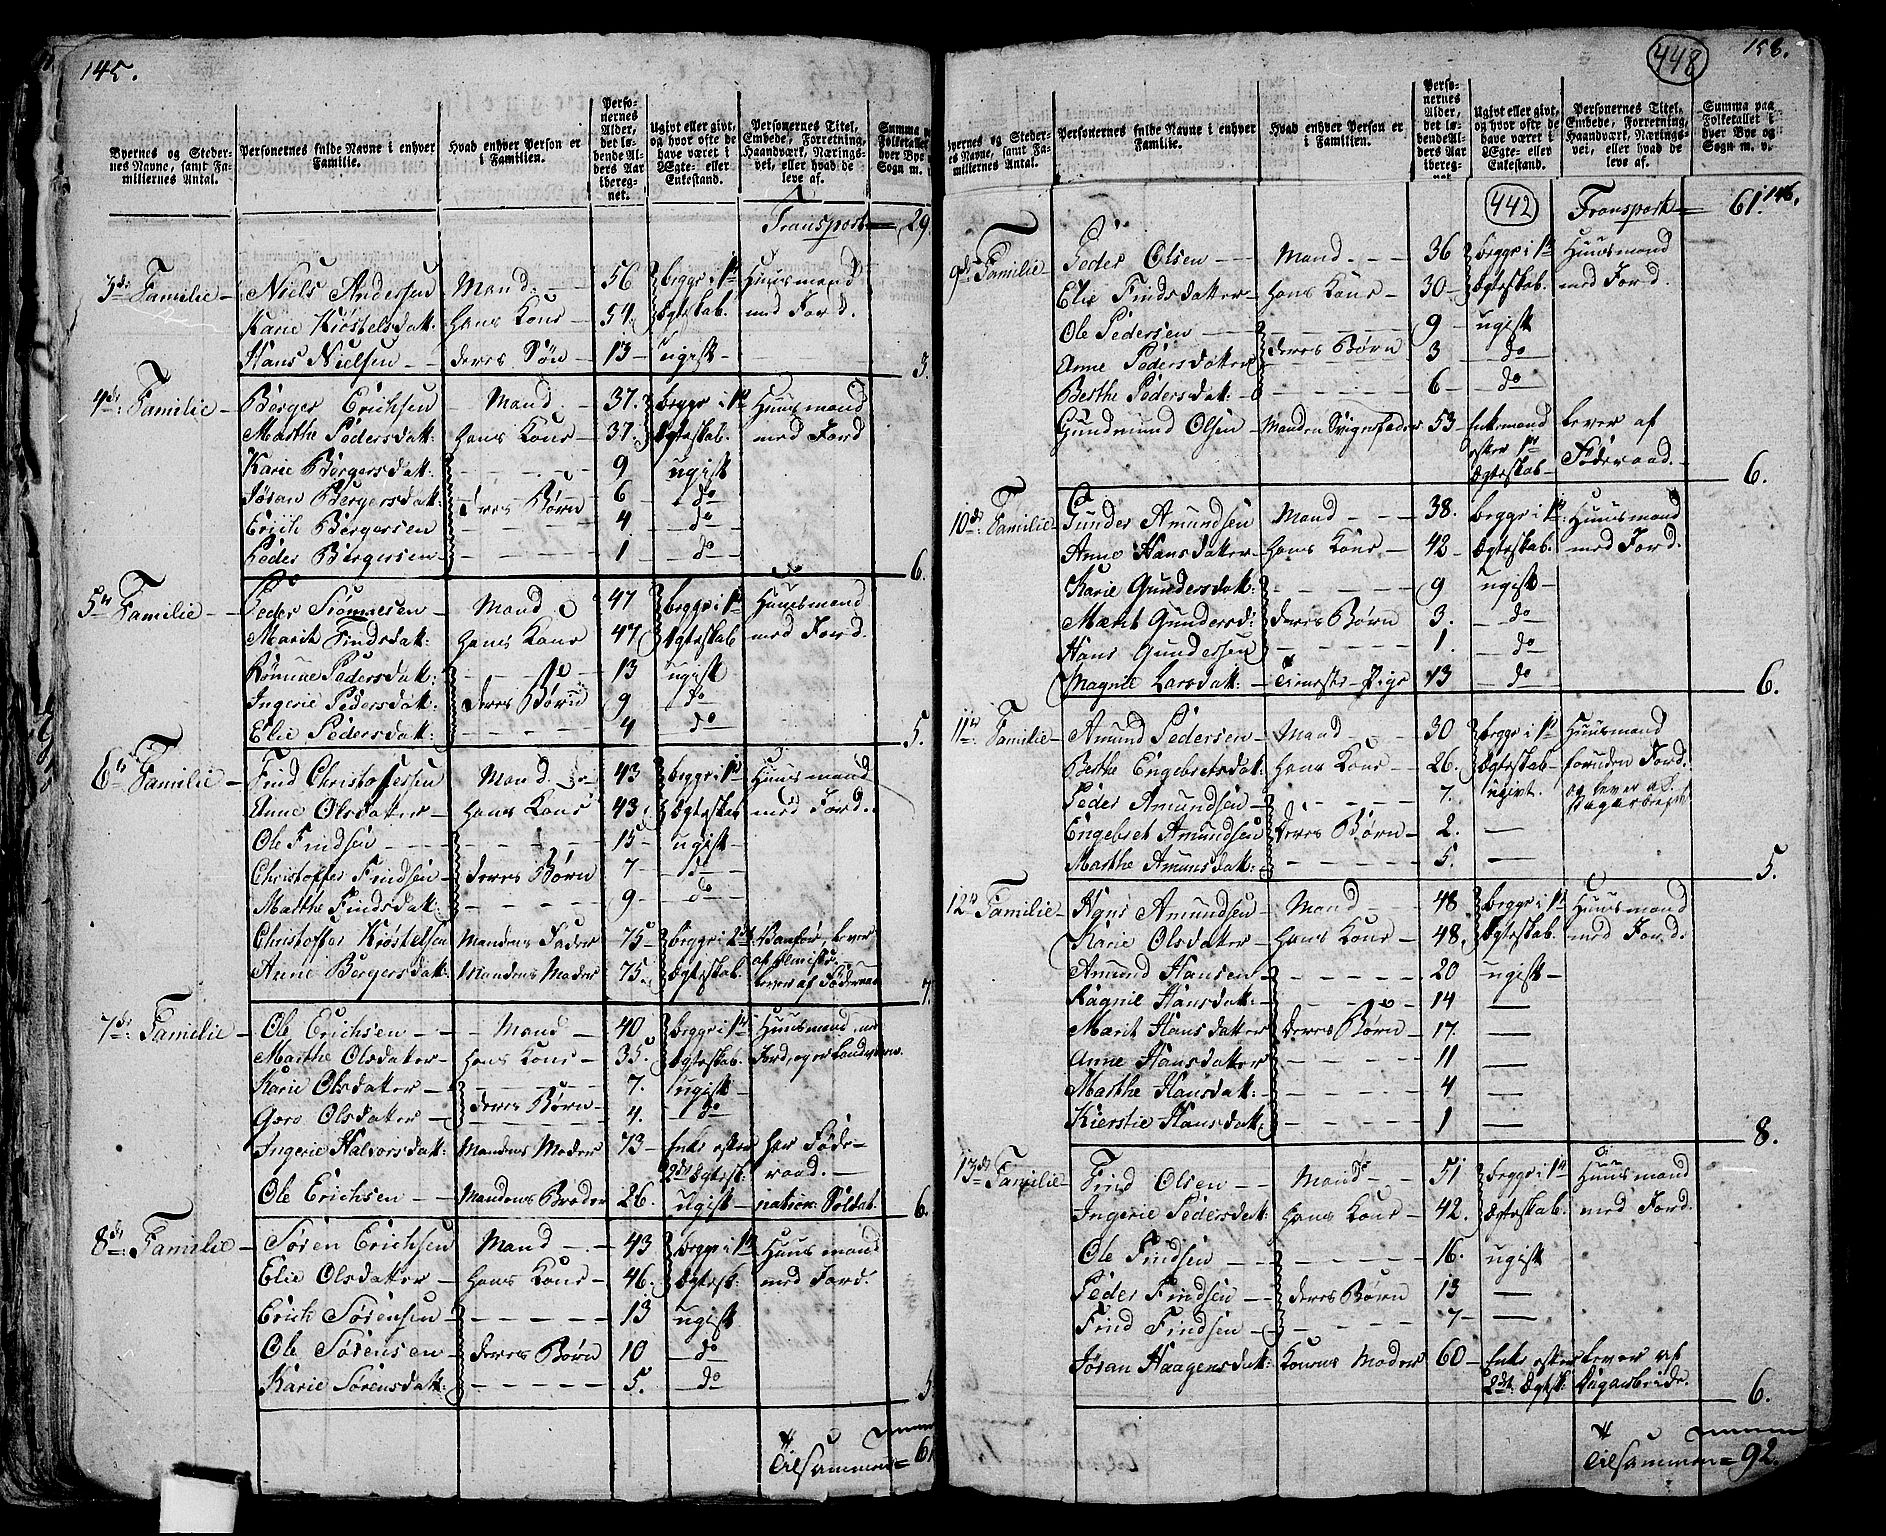 145.
Byernes og Stedernes Navne, samt Familiernes Antal.
Personernes fulde Navne i enhver Familie.
Hvad enhver Person er i Familien.
Personernes Alder, det løbende Alders Aar iberegnet.
Ugivt eller givt, og hvor ofte de have været i Ægte- eller Enkestand.
Personernes Titel, Embede, Forretning, Haandværk, Næringsvei, eller hvad de leve af.
Summa pa Folketallet hver Bye o Sogn m.
Transport 29
3de Familie Niels Andersen Mand 56 begge i 1te Huusmand
Karie Kiøstelsdatt: hans Kone 54 Ægteskab. med Jord.
Hans Nielsen deres Søn 13 ugift 3.
4de Familie Børger Erichsen Mand 37. begge i 1te Huusmand
Marthe Pedersdatt: hans Kone 37. Ægteskab. med Jord
Karie Børgersdatt: 9 ugift
Jøran Børgersdatt: deres Børn 6 do
Erich Børgersen 4 do
Peder Børgersen 1 do 6.
5te Familie Peder Simonsen Mand 47 begge i 1te Huusmand
Marit Findsdatt: hans Kone 47 Ægteskab med Jord.
Pedersdatt: 13 ugift
Ingerie Pedersdatt: deres Børn 9 do
Elie Pedersdatt: 4 do 5.
6te Familie Find Christoffersen Mand 43 begge i 1te Huusmand
Anne Olsdatter hans Kone 43 Ægteskab med Jord.
Ole Findsen 15 ugift
Christoffer Findsen deres Børn 7 do
Marthe Findsdatt: 9 do
Christoffer Kiøstelsen Mandens Fader 75 begge i 2det Vanfør, lever
Anne Børgersdatt: Mandens Moder 75. Ægteskab. af Almisse
lever af Føderaad 7.
7de Familie Ole Erichsen Mand 40 begge i 1te Huusmand med
Marthe Olsdatter hans Kone 35 Ægteskab. Jord, og er Landværn.
Karie Olsdatter 7. ugift
Goro Olsdatter deres Børn 4. do
Ingerie Halvorsdatt: Mandens Moder 73 Enke efter har Føde-
2det Ægtesk: raad.
Ole Erichsen Mandens Broder 26. ugift nation: Soldat 6.
8de Familie Søren Erichsen Mand 43 begge i 1te Huusmand
Elie Olsdatter hans Kone 46. Ægtesk: med Jord.
Erich Sørensen 13 ugift
Ole Sørensen deres Børn 10 do
Karie Sørensdatt: 5. do 5
Tilsammen 61
448
158.
Byernes og Stedernes Navne, samt Familiernes Antal.
Personernes fulde Navne i enhver Familie.
Hvad enhver Person er i Familien.
Personernes Alder, det løbende Alders Aar iberegnet.
Ugivt eller givt, og hvor ofte de have været i Ægte- eller Enkestand.
Personernes Titel, Embede, Forretning, Haandværk, Næringsvei, eller hvad de leve af.
Summa paa Folketallet i hver Bye og Sogn m. v.
442 Transport 61. 146.
9de Familie Peder Olsen Mand 36 begge i 1te Huusmand
Elie Findsdatter hans Kone 30 Ægteskab. med Jord.
Ole Pedersen 9 ugift
Anne Pedersdatter deres Børn 3 do
Berthe Pedersdatt: 6 do
Gundmund Olsen Mandens Svigerfader 53 Enkemand lever af
efter 1te Føderaad.
Ægteskab 6.
10de Familie Gunder Amundsen Mand 38. begge i 1te Huusmand
Anne Hansdatter hans Kone 42 Ægteskab. med Jord.
Karie Gundersdatt: 9 ugift
Marit Gundersd: deres Børn 3. do
Hans Gundersen 1. do
Magnil Larsdatt: Tieneste Pige 43 do 6.
11te Familie Amund Pedersen Mand 30 begge i 1te Huusmand
Berthe Engebretsdatt: hans Kone 26. Ægteskab foruden Jord.
Peder Amundsen 7. ugivt. og lever af
Dagarbeide
Engebret Amundsen deres Børn 2.
Marthe Amunsdatt: 5. 5.
12te Familie Hans Amundsen Mand 48 begge i 1te Huusmand
Karie Olsdatter hans Kone 48. Ægteskab. med Jord.
Amund Hansen 20 ugift
Ragnil Hansdatt: 14
Marit Hansdatter deres Børn 17.
Anne Hansdatter 11
Marthe Hansdatt: 4
Kierstie Hansdatt: 1 8.
13de Familie Find Olsen Mand 51 begge i 1te Huusmand
Ingerie Pedersdatt: hans Kone 42. Ægteskab. med Jord.
Ole Findsen 16. ugift
Peder Findsen deres Børn 13
Find Findsen 7
Jøran Haagensdatt: Konens Moder 60 Enke efter lever af
2det Ægtesk: Dagarbeide. 6.
Tilsammen 92.